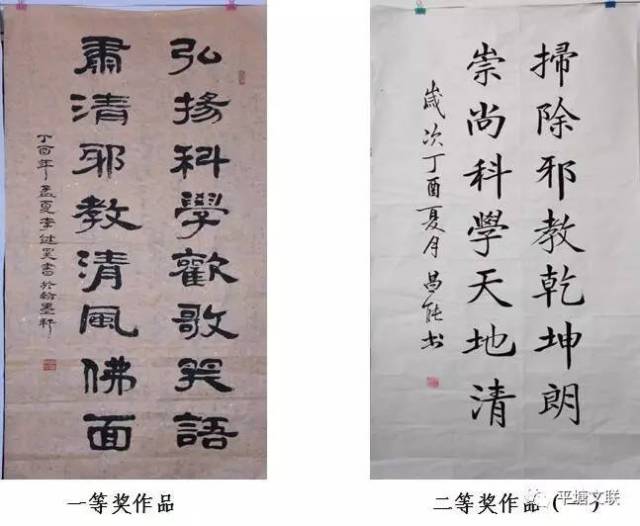 弘扬科學歡歌笑語
肅清邪教清風佛面
丁酉年孟夏李健昊書於翰墨軒
掃除邪教乾坤朗
崇尚科學天地清
歲次丁酉夏月昌能书
一等奖作品
二等奖作品（一）
平塘文联